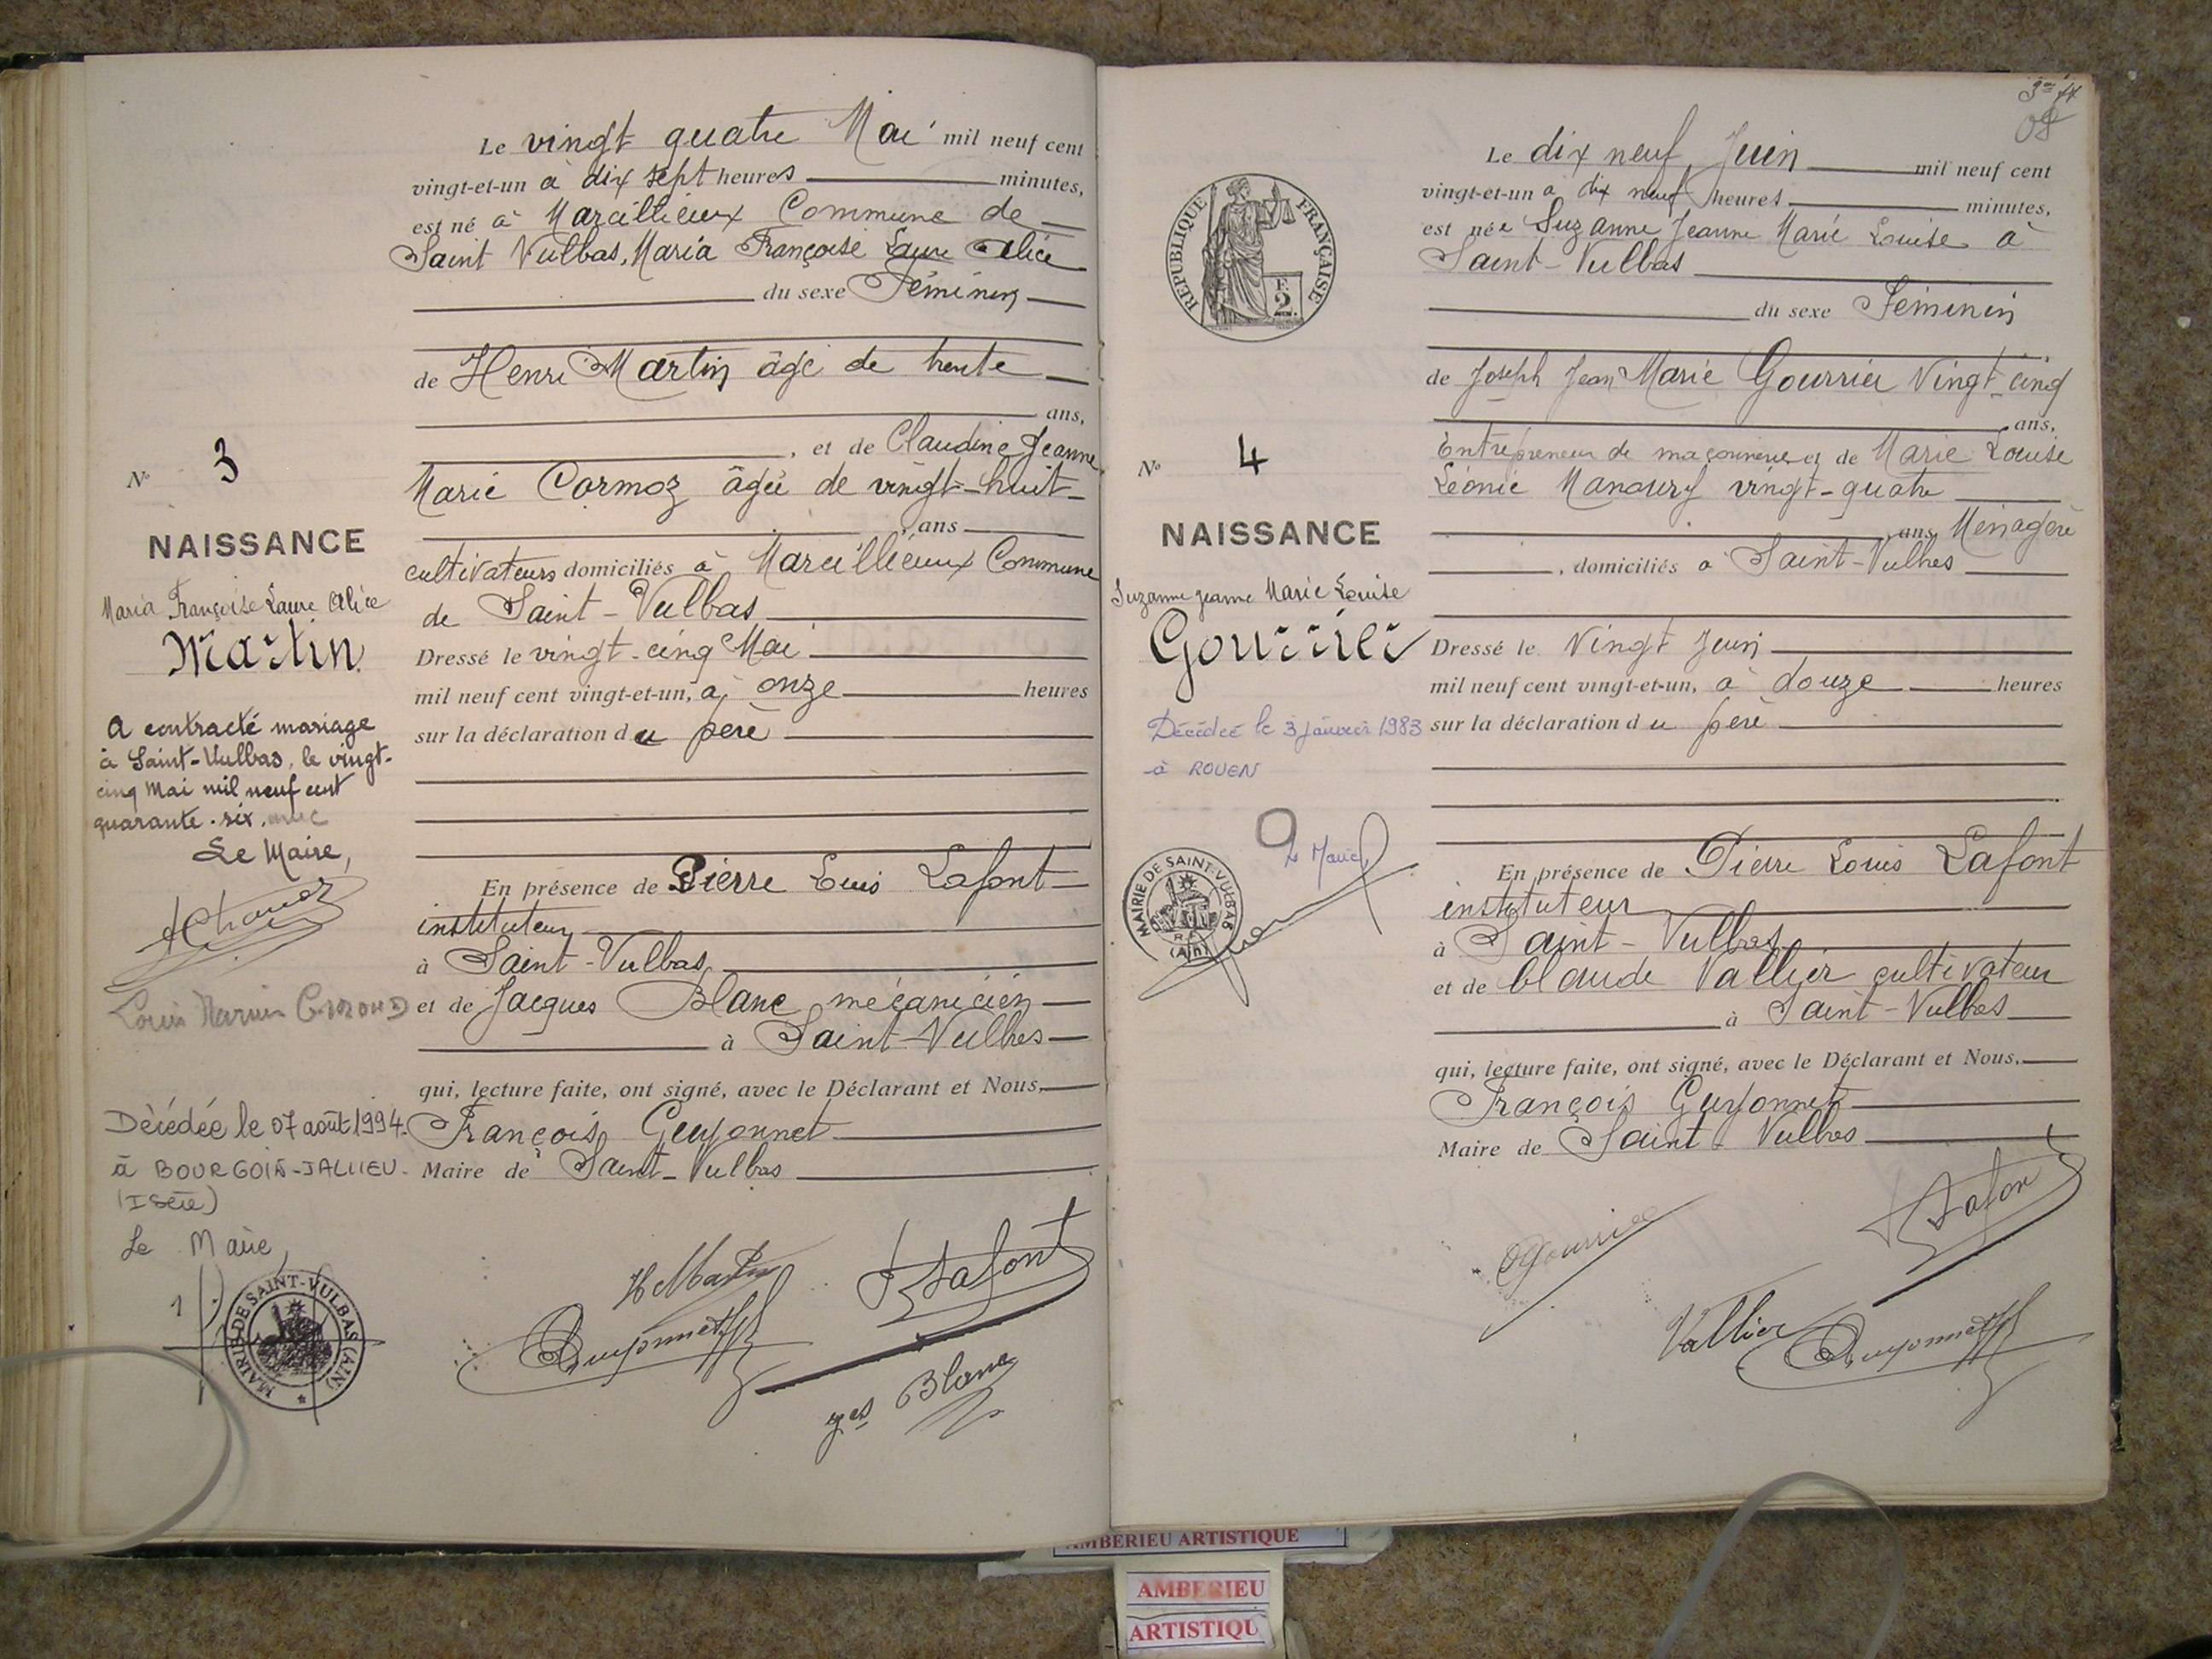 Le vingt quatre Mai mil neuf cent
vingt-et-un à dix sept heures minutes,
est né à Marcillieux Commune de
Saint Vulbas, Maria Françoise Laure Alice
du sexe Féminin
de Henri Martin âgé de trente
ans,
, et de Claudine Jeanne
Marie Cormoz âgée de vingt-huit
ans
cultivateurs domiciliés à Marcillieux Commune
de Saint-Vulbas
Dressé le vingt-cinq Mai
mil neuf cent vingt-et-un, à onze heures
sur la déclaration du père
En présence de Pierre Louis Lafont
instituteur
à Saint-Vulbas
et de Jacques Blanc mécanicien
à Saint-Vulbas
qui, lecture faite, ont signé, avec le Déclarant et Nous,
François Guyonnet
Maire de Saint-Vulbas
H Martin
Lafont
Guyonnet
Blanc
N° 3
NAISSANCE
Maria Françoise Laure Alice
Martin
A contracté mariage
à Saint-Vulbas, le vingt-
cinq Mai mil neuf cent
quarante-six, avec
Le Maire,
Louis
Décédée le 07 août 1994
à BOURGOIN-JALLIEU
(Isère)
Le Maire,
MAIRIE DE SAINT-VULBAS (AIN)
Le dix neuf Juin mil neuf cent
vingt-et-un à dix neuf heures minutes,
est née Suzanne Jeanne Marie Louise à
Saint-Vulbas
du sexe Féminin
de Joseph Jean Marie Gourrier Vingt-cinq
ans,
Entrepreneur de maçonnerie et de Marie Louise
Léonie Manoury vingt-quatre
ans, Ménagère
, domiciliés à Saint-Vulbas
Dressé le Vingt Juin
mil neuf cent vingt-et-un, à douze heures
sur la déclaration du père
En présence de Pierre Louis Lafont
instituteur
à Saint-Vulbas
et de Claude Vallier cultivateur
à Saint-Vulbas
qui, lecture faite, ont signé, avec le Déclarant et Nous,
François Guyonnet
Maire de Saint-Vulbas
Gourrier
Lafont
Vallier
Guyonnet
RÉPUBLIQUE FRANÇAISE
F.
2.
N° 4
NAISSANCE
Suzanne Jeanne Marie Louise
Gourrier
Décédée le 3 janvier 1983
à ROUEN
Le Maire
MAIRIE DE SAINT-VULBAS
R.F.
(Ain)
AMBERIEU ARTISTIQUE
AMBERIEU
ARTISTIQU